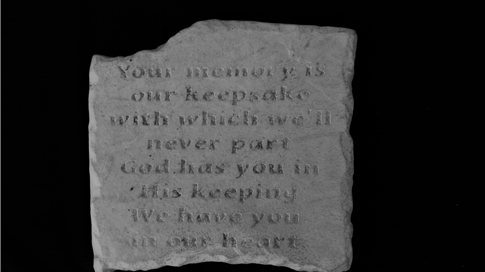 Your memory is
our keepsake
with which we'll
never part
God has you in
His keeping
We have you
in our heart.